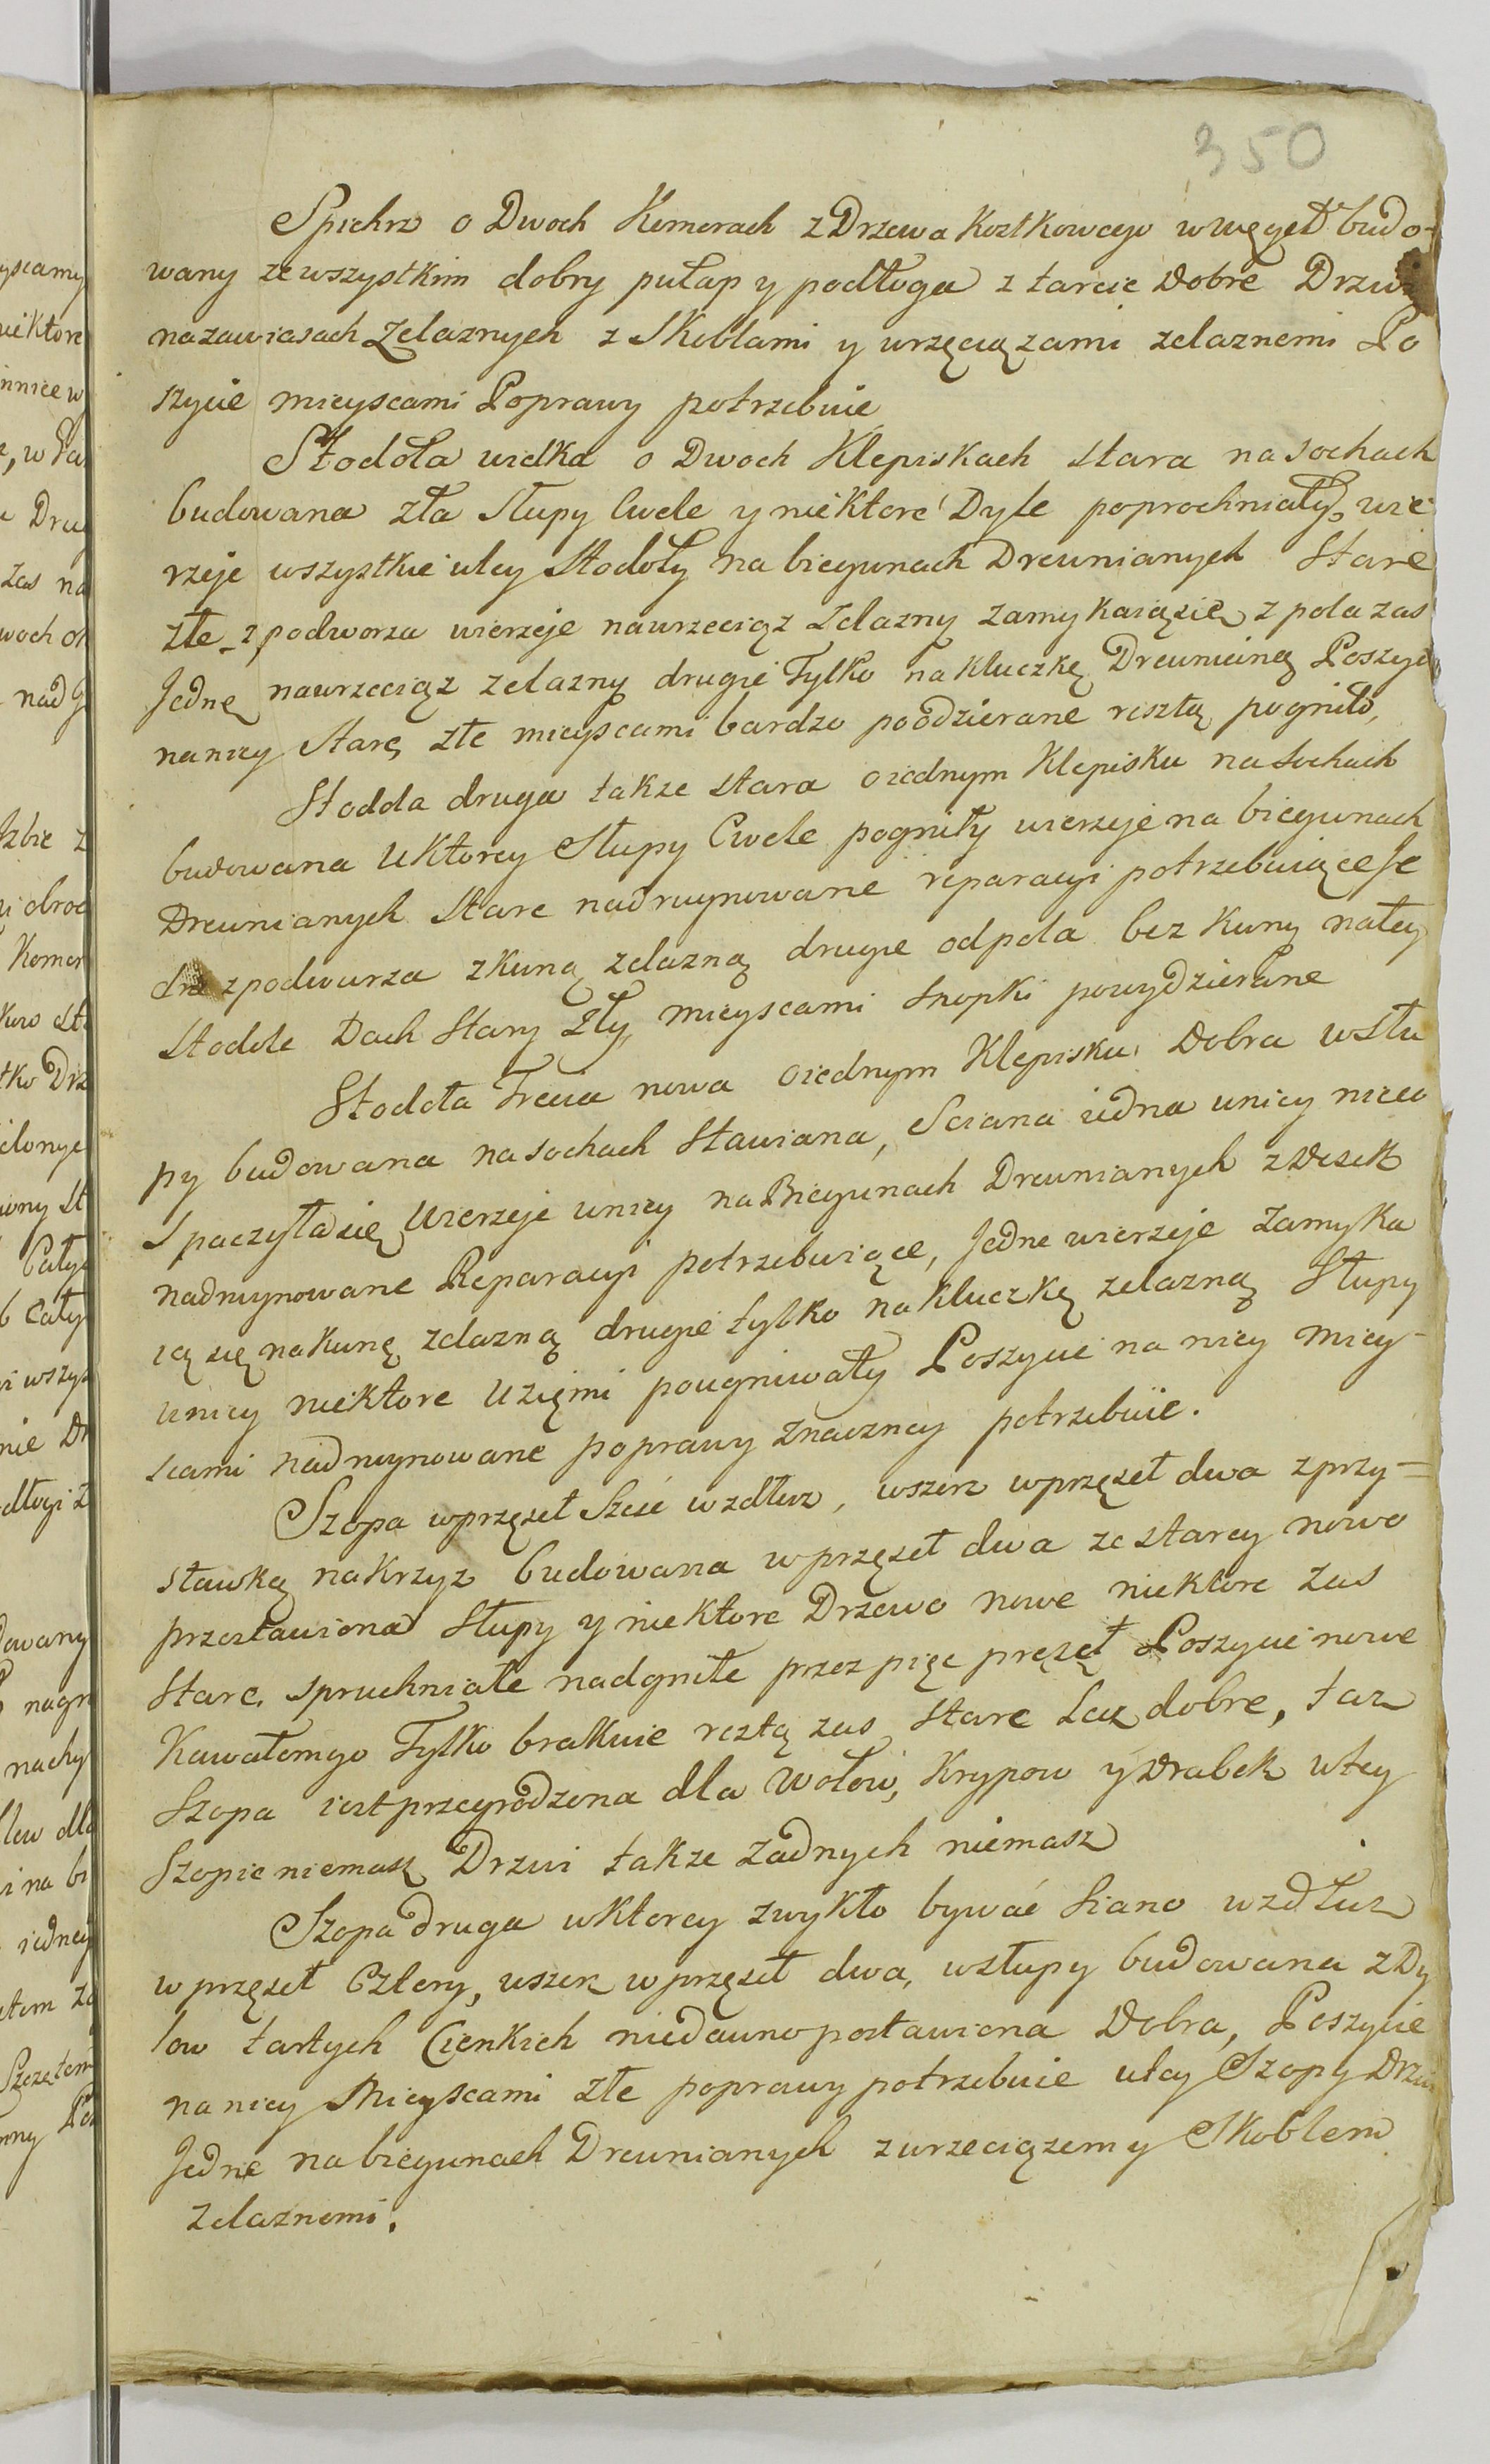 350
Spichrz o Dwoch Komorach z Drzewa Kostkowego w węgieł budo-
wany ze wszystkim dobry pułap y podłoga z tarcic dobre Drzwi
na zawiasach Zelaznych z Skoblami y wrzęciązami zelaznemi Po
szycie mieyscami Poprawy potrzebuie
Stodoła wielka o Dwoch Klepiskach stara na sochach
budowana zła Słupy Cwele y niektore Dyle poprochniały, wie
rzeje wszystkie u tey Stodoły na biegunach Drewnianych Stare
złe z podworza wierzeje na wrzeciąz Zelazny zamykaią się z pola zas
Jedne na wrzeciąz zelazny drugie Tylko na Kluczkę Drewnianą Poszyci
na niey Stare złe mieyscami bardzo poodzierane resztą pogniło,
Stodoła druga takze stara o iednym Klepisku na sochach
budowana u Ktorey Słupy Cwele pogniły wierzeje na biegunach
Drewnianych Stare nadrujnowane reparacyi potrzebuiące Je
dne z podwurza z kuną zelazną drugie od pola bez Kuny na tey
Stodole Dach Stary Zły, mieyscami Snopki powydzierane
Stodoła Trecia nowa o iednym Klepisku Dobra w Słu
py budowana na sochach Stawiana, Sciana iedna u niey nieco
Spaczyła się Wierzeje u niey na Biegunach Drewnianych z Desek
nadrujnowane Reparacyi potrzebuiące, Jedne wierzeje Zamyka
ią się na Kunę zelazną drugie tylko na Kluczkę zelazną Słupy
u niey niektore u ziemi pougniwały Poszycie na niey miey-
scami nadrujnowane poprawy znaczney potrzebuie.
Szopa w przęseł Sześć wzdłuz, wszerz w przęseł dwa z przy=
stawką na Krzyz budowana w przęseł dwa ze starey nowo
przestawiona Słupy y niektore Drzewo nowe niektore zas
Stare, spruchniałe nadgniłe przez pięc pręzeł Poszycie nowe
Kawałemgo Tylko brakuie resztą zas stare Lecz dobre, taz
Szopa iest przegrodzona dla Wołow, Krypow y Drabek w tey
Szopie niemasz Drzwi takze Zadnych niemasz
Szopa druga w ktorey zwykło bywać Siano wzdłuz
w przęseł Cztery, wszerz w przęseł dwa, w słupy budowana z Dy
low tartych Cienkich niedawno postawiona Dobra, Poszycie
na niey Mieyscami złe poprawy potrzebuie u tey Szopy Drzwi
Jedne na biegunach Drewnianych z wrzeciązem y Skoblem
Zelaznemi.